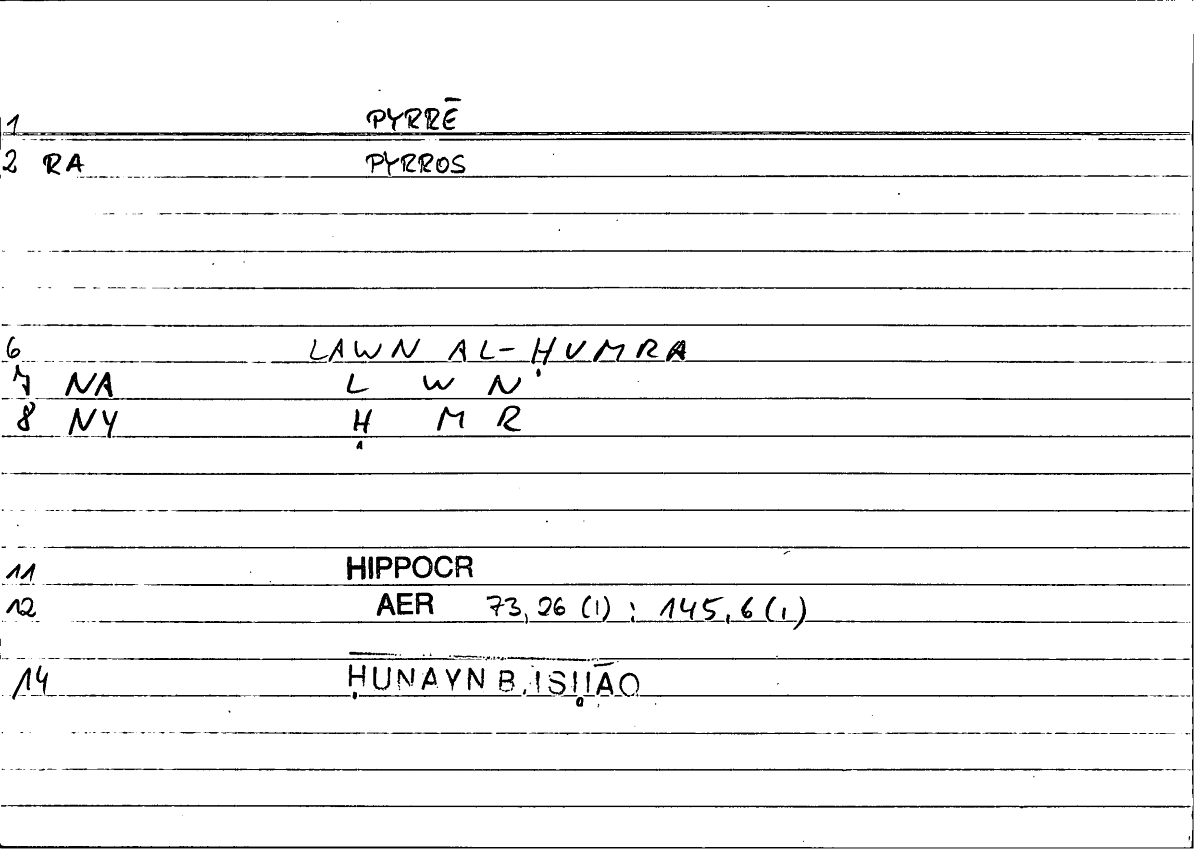 1 PYRRĒ
2 RA PYRROS
6 LAWN AL-ḤUMRA
7 NA L W N
8 NY Ḥ M R
11 HIPPOCR
12 AER 73,26 (1) ; 145,6 (1)
14 ḤUNAYN B. ISḤĀQ